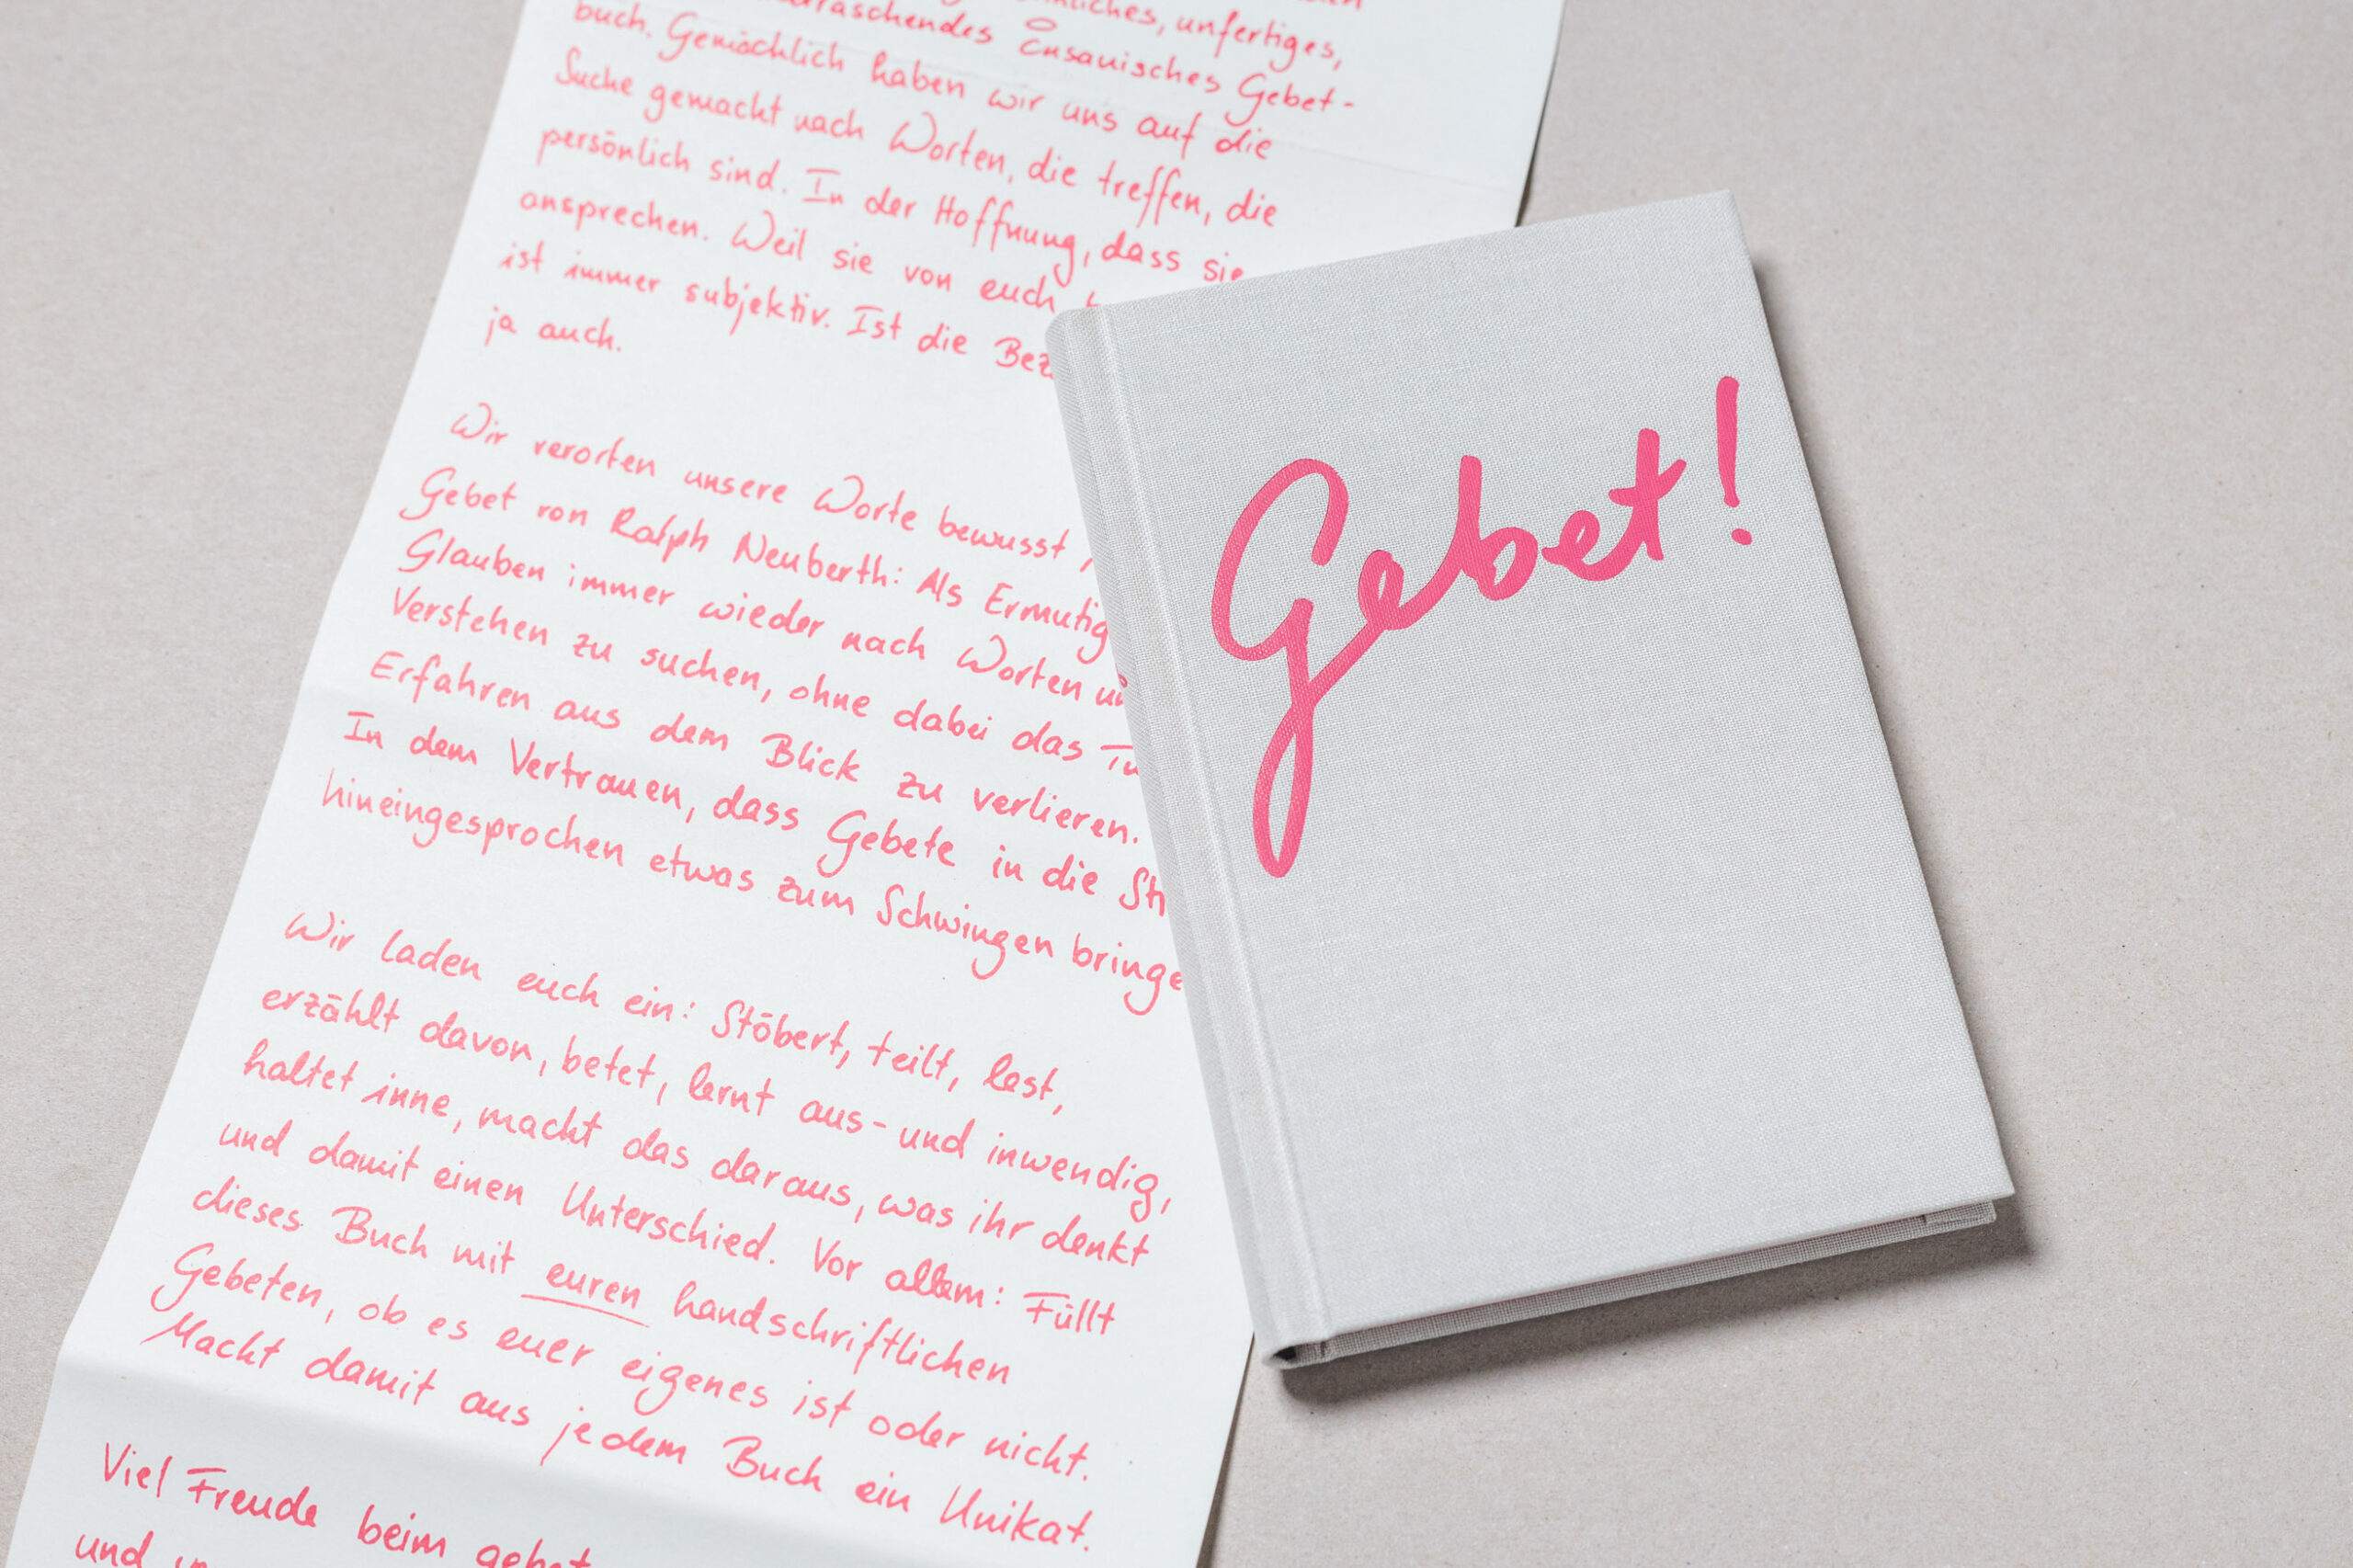 unfertiges,
Ensanisches Gebet-
buch. Gemächlich haben wir uns auf die
Suche gemacht nach Worten, die treffen, die
persönlich sind. In der Hoffnung, dass sie
ansprechen. Weil sie von euch
ist immer subjektiv. Ist die
ja auch.
Wir verorten unsere Worte bewusst
Gebet von Ralph Neuberth: Als
Glauben immer wieder nach Worten
Verstehen zu suchen, ohne dabei das
Erfahren aus dem Blick zu verlieren.
In dem Vertrauen, dass Gebete in die
hineingesprochen etwas zum Schwingen
Wir laden euch ein: Stöbert, teilt, lest,
erzählt davon, betet, lernt aus- und inwendig,
haltet inne, macht das daraus, was ihr denkt
und damit einen Unterschied. Vor allem: Füllt
dieses Buch mit euren handschriftlichen
Gebeten, ob es euer eigenes ist oder nicht.
Macht damit aus jedem Buch ein Unikat.
Viel Freude beim
und
Gebet!